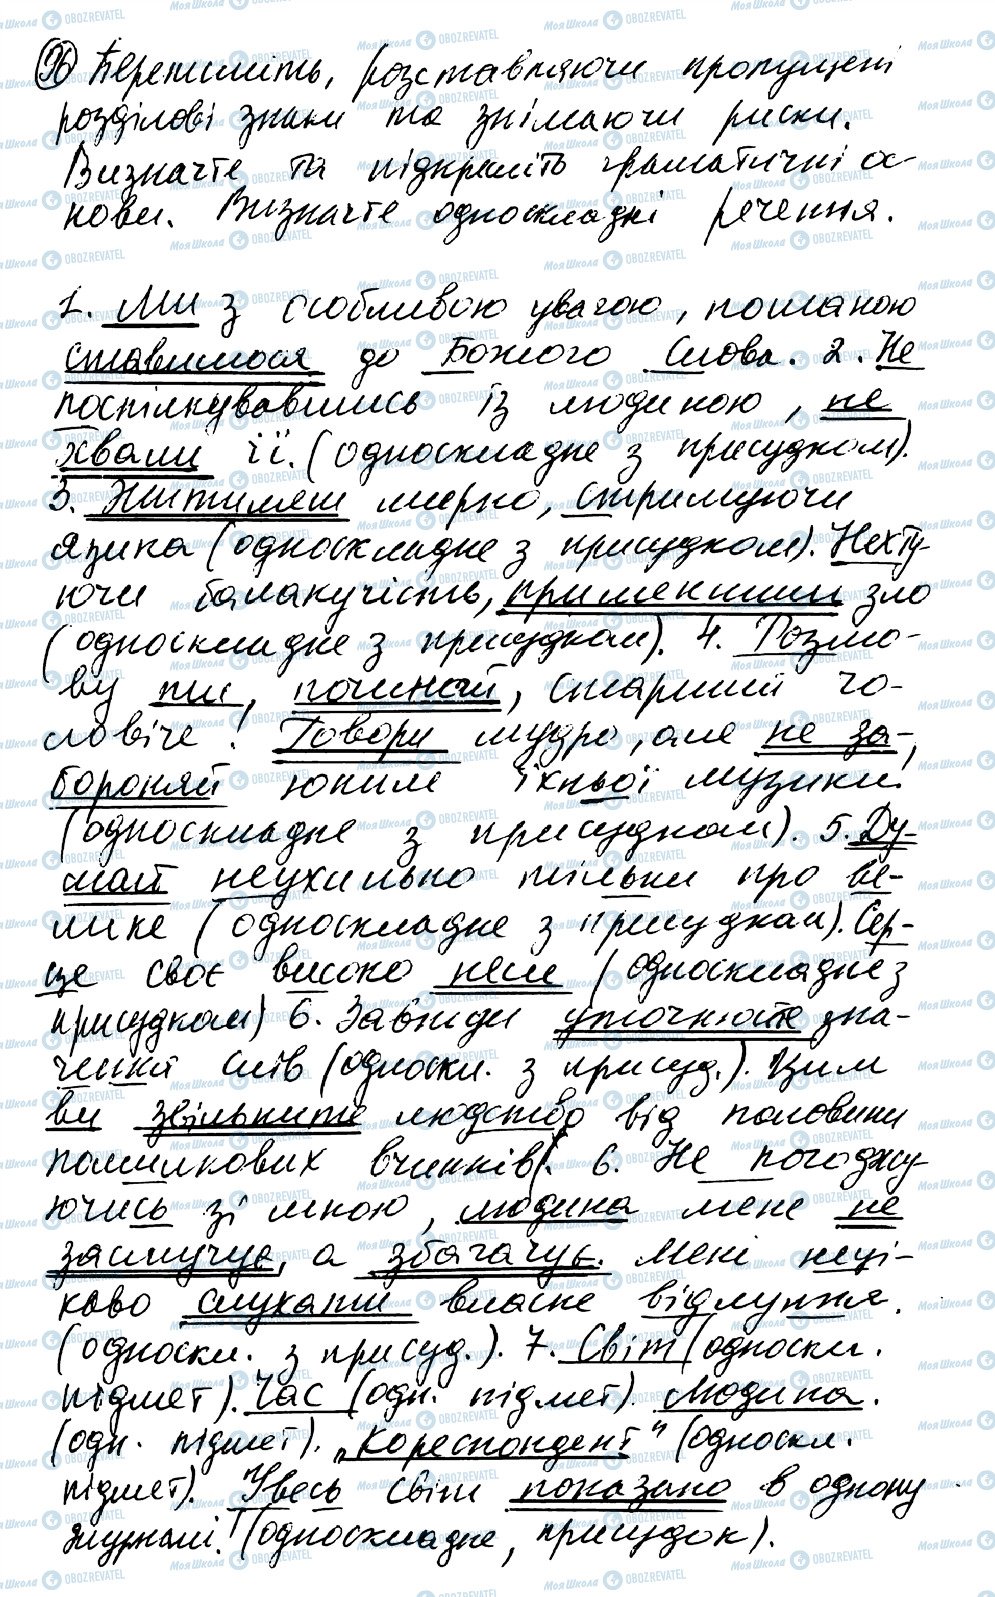 96 Перепишіть, розставляючи пропущені
розділові знаки та знімаючи риски.
Визначте та підкресліть граматичні ос-
нови. Визначте односкладні речення.
1. Ми з особливою увагою, пошаною
ставимося до Божого Слова. 2. Не
поспілкувавшись із людиною, не
хвали її. (односкладне з присудком).
3. Житимеш мирно, стримуючи
язика (односкладне з присудком). Нехту-
ючи балакучість, применшиш зло
(односкладне з присудком). 4. Розмо-
ву ти, починай, старший чо-
ловіче! Говори мудро, але не за-
бороняй юним їхньої музики.
(односкладне з присудком). 5. Ду-
май неухильно тільки про ве-
лике (односкладне з присудком). Сер-
це своє високо неси (односкладне з
присудком) 6. Завжди уточнюйте зна-
чення слів (односкл. з присуд.). Цим
ви звільните людство від половини
помилкових вчинків. 6. Не погоджу-
ючись зі мною, людина мене не
засмучує, а збагачує. Мені неці-
каво слухати власне відлуння.
(односкл. з присуд.). 7. Світ (односкл.
підмет). Час (одн. підмет). Людина.
(одн. підмет). „Кореспондент" (односкл.
підмет). Увесь світ показано в одному
журналі! (односкладне, присудок).
МояШкола OBOZREVATEL